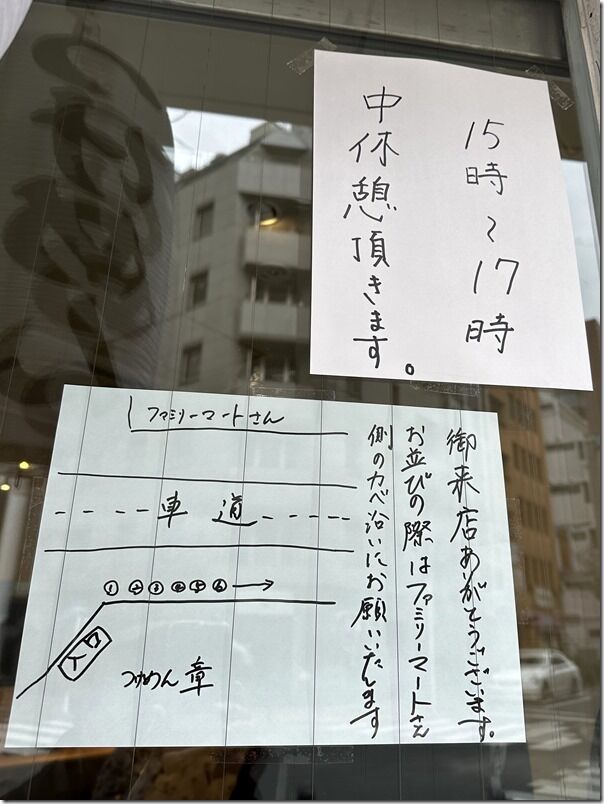 15時~17時
中休憩頂きます。
御来店ありがとうございます。
お並びの際はファミリーマートさん
側のカベ沿いにお願いいたします
ファミリーマートさん
車道
①②③④⑤⑥→
入口
つけめん 章